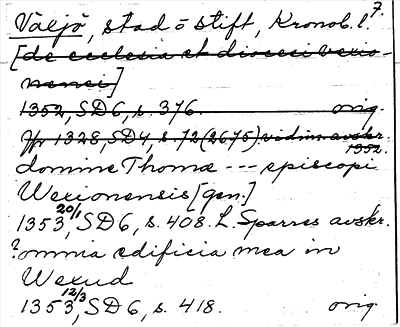 7.
Växjö, stad o stift, Kronob. l.
[de ecclesia et diocesi vexio-
nensi]
1352, SD 6, s. 376. orig.
Jfr 1328, SD 4, s. 72 (2675) vidim. avskr. 1352.
domine Thoma --- episcopi
Wexionensis [gen.]
1353 20/1, SD 6, s. 408. L. Sparres avskr.
? omnia edificia mea in
Wexud
1353 12/3, SD 6, s. 418. orig.